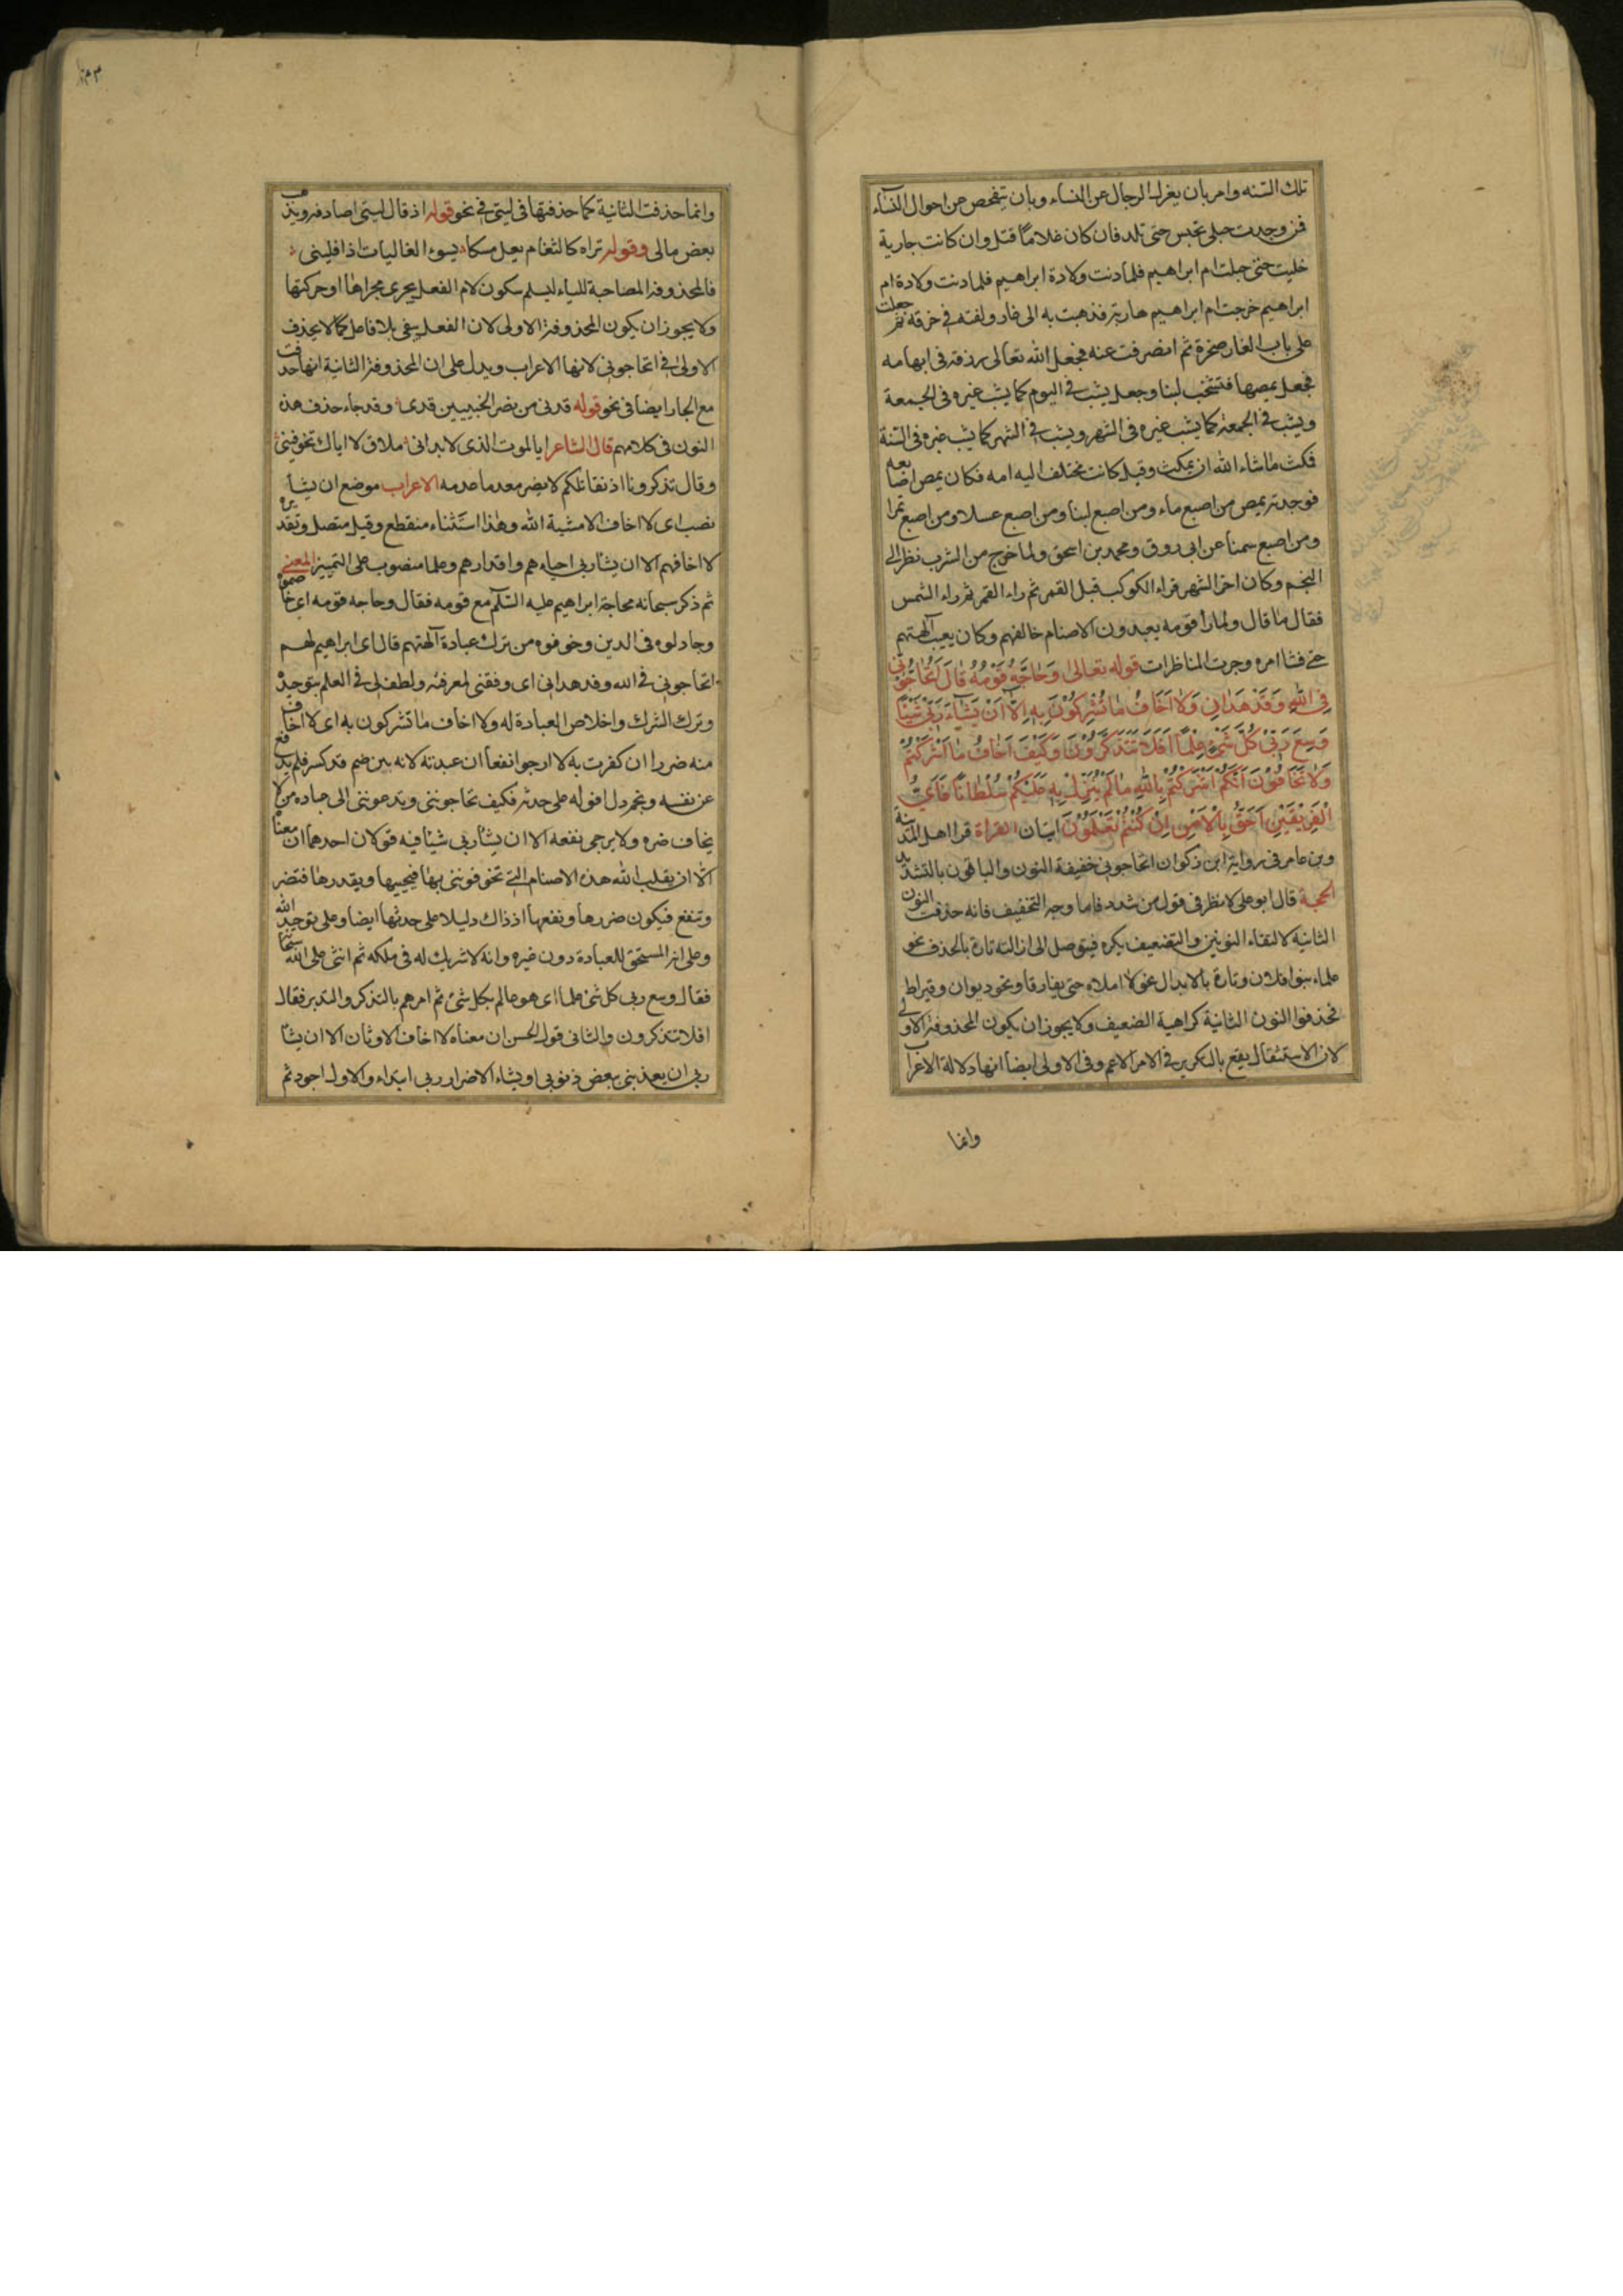 تلك السنه وامر بان يعزل الرجال عن النساء وبان يتفحص عن احوال النساء
فمن وجدت حبلى تحبس حتى تلد فان كان غلاما قتل وان كانت جارية
خليت حتى حبلت ام ابراهيم فلما دنت ولادة ابراهيم فلما دنت ولادة ام
ابراهيم خرجت ام ابراهيم هاربة فذهبت به الى غار ولفته فى خرقة ثم جعلت
على باب الغار صخرة ثم انصرفت عنه فجعل الله تعالى رزقه فى ابهامه
فجعل يمصها فتشخب لبنا وجعل يشب فى اليوم كما يشب غيره فى الجمعة
ويشب فى الجمعة كما يشب غيره فى الشهر ويشب فى الشهر كما يشب غيره فى السنة
فمكث ماشاء الله ان يمكث وقيل كانت تختلف اليه امه فكان يمص اصابعه
فوجدته يمص من اصبع ماء ومن اصبع لبنا ومن اصبع عسلا ومن اصبع تمرا
ومن اصبع سمنا عن ابى روق ومحمد بن اسحق ولما خرج من السرب نظر الى
النجم وكان اخر الشهر فراء الكوكب قبل القمر ثم راء القمر ثم راء الشمس
فقال ما قال ولما را قومه يعبدون الاصنام خالفهم وكان يعيب آلهتهم
حتى فشا امره وجرت المناظرات قوله تعالى وَحَاجَّهُ قَوْمُهُ قَالَ اَتُحَاجُّونّى
فِى اللهِ وَقَدْ هَدَانِ وَلَا اَخَافُ مَا تُشْرِكُوْنَ بِهِ اِلَّا اَنْ يَشَاءَ رَبّى شَيْئًا
وَسِعَ رَبّى كُلَّ شَىْءٍ عِلْمًا اَفَلَا تَتَذَكَّرُوْنَ وَكَيْفَ اَخَافُ مَا اَشْرَكْتُمْ
وَلَا تَخَافُوْنَ اَنَّكُمْ اَشْرَكْتُمْ بِاللهِ مَا لَمْ يُنَزِّلْ بِهِ عَلَيْكُمْ سُلْطَانًا فَاَىُّ
الْفَرِيْقَيْنِ اَحَقُّ بِالْاَمْنِ اِنْ كُنْتُمْ تَعْلَمُوْنَ ايتان القراة قرا اهل المدينة
وبن عامر فى رواية ابن ذكوان اتحاجونى خفيفة النون والباقون بالتشديد
الحجة قال ابو على لا نظر فى قول من شدد فاما وجه التخفيف فانه حذفت النون
الثانية لالتقاء النونين والتضعيف يكره فيتوصل الى ازالته تارة بالحذف نحو
علماء بنو افلان وتارة بالابدال نحو لا املاه حتى يفارقا ونحو ديوان وقيراط
فحذفوا النون الثانية كراهية الضعيف ولا يجوز ان يكون المحذوفة الاولى
لان الاستثقال يقع بالتكرير فى الامر الاعم وفى الاولى ايضا انها دلالة الاعراب
وانما
وانما حذفت الثانية كما حذفتها فى ليتى فى نحو قوله اذ قال ليتى اصادفه ويذهب
بعض مالى وقوله تراه كالثغام يعل مسكا يسوء الغاليات اذا فلينى
فالمحذوفة المصاحبة للياء ليسلم سكون لام الفعل يجرى مجراها او حركتها
ولا يجوز ان يكون المحذوفة الاولى لان الفعل يبقى بلا فاعل كما لا يحذف
الاولى فى اتحاجونى لانها الاعراب ويدل على ان المحذوفة الثانية انها حذفت
مع الجار ايضا فى نحو قوله قدنى من نصر الخبيبين قدى وقد جاء حذف هذه
النون فى كلامهم قال الشاعر ابالموت الذى لا بد انى ملاق لا اباك تخوفينى
وقال تذكرونا اذ نقاتلكم لا يضر معدما عدمه الاعراب موضع ان يشأ
نصب اى لا اخاف الا مشية الله وهذا استثناء منقطع وقيل متصل وتقديره
لا اخافهم الا ان يشأ ربى احياءهم واقدارهم وعلما منصوب على التمييز المعنى
ثم ذكر سبحانه محاجة ابراهيم عليه السلم مع قومه فقال وحاجه قومه اى خاصموه
وجادلوه فى الدين وخوفوه من ترك عبادة آلهتهم قال اى ابراهيم لهم
اتحاجونى فى الله وقد هدانى اى وفقنى لمعرفته ولطف لى فى العلم بتوحيده
وترك الشرك واخلاص العبادة له ولا اخاف ما تشركون به اى لا اخاف
منه ضررا ان كفرت به لا ارجوا نفعا ان عبدته لانه بين صنم قد كسر فلم يدفع
عن نفسه ونجم دل افوله على حدثه فكيف تحاجوننى وتدعوننى الى عباده من لا
يخاف ضره ولا يرجى نفعه الا ان يشأ ربى شيئا فيه قولان احدهما ان معناه
الا ان يقلب الله هذه الاصنام التى تخوفوننى بها فيحييها ويقدرها فتضر
وتنفع فيكون ضررها ونفعها اذ ذاك دليلا على حدثها ايضا وعلى توحيد الله
وعلى انه المستحق للعبادة دون غيره وانه لا شريك له فى ملكه ثم اثنى على الله سبحانه
فقال وسع ربى كل شئ علما اى هو عالم بكل شئ ثم امرهم بالتذكر والتدبر فقال
افلا تتذكرون والثانى قول الحسن ان معناه لا اخاف الاوثان الا ان يشأ
ربى ان يعذبنى ببعض ذنوبى او يشاء الاضرار ربى ابتداء والاول اجود ثم